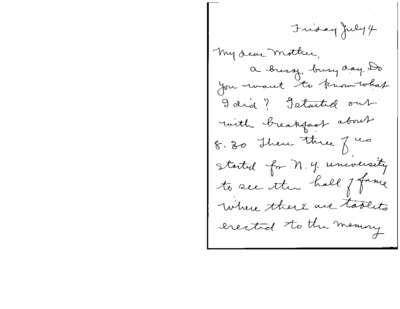 Friday July 4
My dear Mother,
a busy, busy day. Do
you want to know what
I did? I started out
with breakfast about
8.30 Then three of us
started for N.Y. university
to see the hall of fame
where there are tablets
erected to the memory